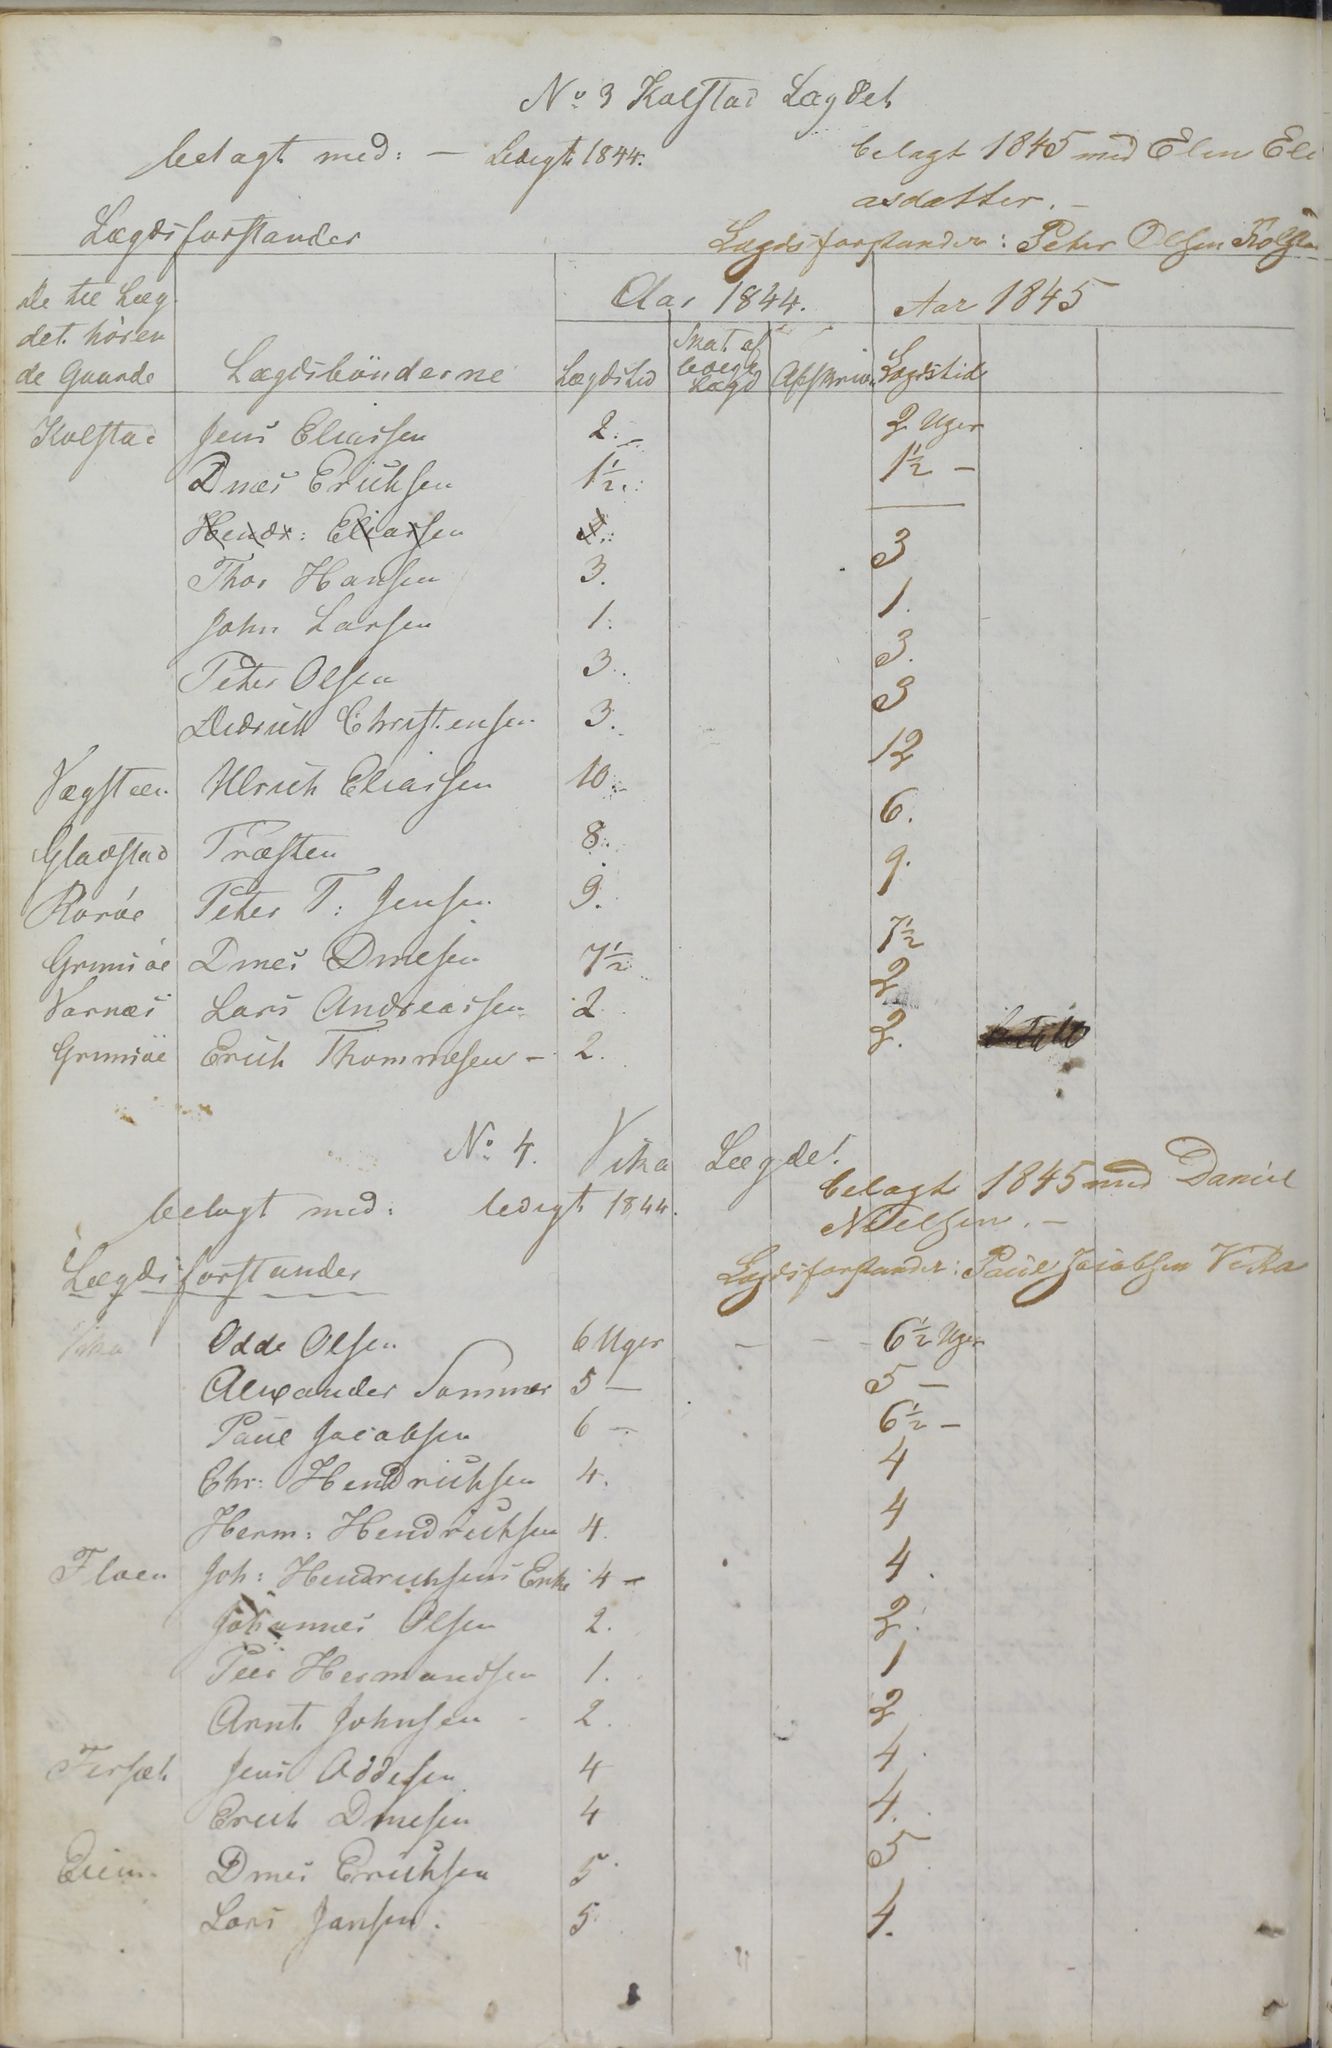 No 3 Kolstad Lægdet
belagt med: — Ledigt 1844.
belagt 1845 med Elen Eli
asdatter. —
Lægdsforstander
Lægdsforstander: Peter Olsen Kolsta
De til Læg
det hören
de Gaarde
Lægdsbönderne
Aar 1844.
Aar 1845
Lægdstid
Mat. af
ledigt
Lægd
Afskriv
Lægdstid
Kolstad Jens Eliassen 2. — 2 Uger
Dnæs Erichsen 1½. 1½ —
Hendr: Eliassen —
Thor Hansen 3. 3
John Larsen 1. 1.
Peter Olsen 3. 3.
Didrich Christensen 3. 3
Vægsteen Ulrich Eliassen 10. 12
Gladstad Præsten 8. 6.
Roröe Peter T: Jensen 9. 9.
Grimsöe Dines Dinesen 7½ 7½
Varnæs Lars Andreassen 2. 2
Grimsöe Erich Thommesen — 2. 2.
No 4. Vika Lægdet.
belagt med: ledigt 1844.
belagt 1845 med Daniel
Nielsen. —
Lægdsforstander
Lægdsforstander: Paul Jacobsen Vika
Vika Odde Olsen 6 Uger — — - 6½ Uger
Alexander Sommer 5 — 5 —
Paul Jacobsen 6 — 6½ —
Chr: Hendrichsen 4. 4
Herm: Hendrichsen 4. 4
Floen Joh: Hendrichsens Enke 4 — 4.
Johannes Olsen 2. 2.
Peer Hermandsen 1. 1
Arnt Johnsen - 2. 2
Fersæt Jens Addesen 4 4.
Erich Dinesen 4 4.
Dines Erichsen 5 5
Lars Jansen. 5 4.